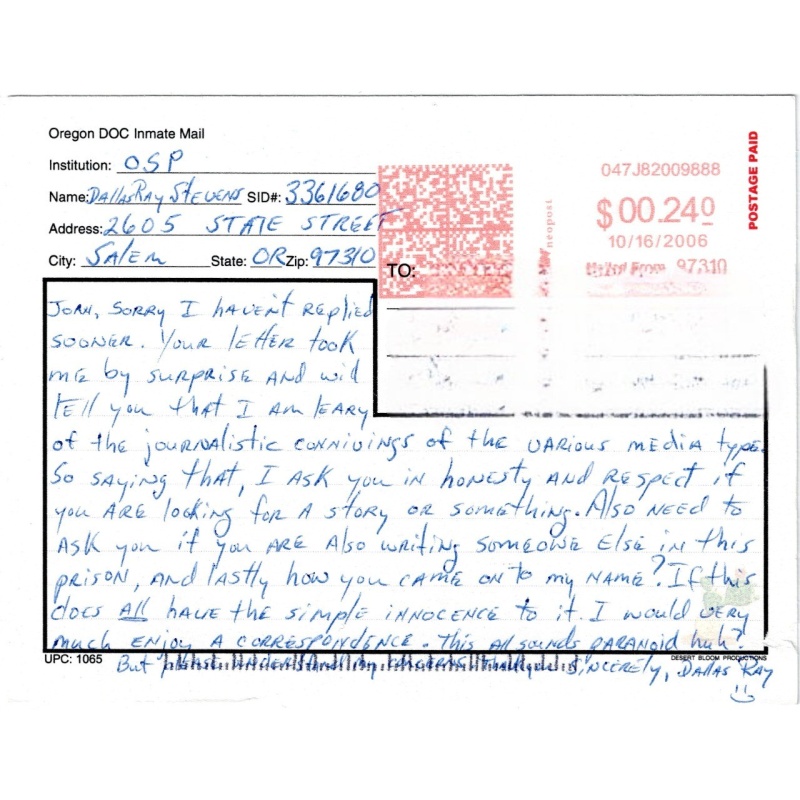 Oregon DOC Inmate Mail
Institution: OSP
Name: Dallas Ray Stevens SID#: 3361680
Address: 2605 State Street
City: Salem State: OR Zip: 97310
047J82009888
$00.240
10/16/2006
Mailed From 97310
neopost
POSTAGE PAID
TO:
John, Sorry I haven't replied
sooner. Your letter took
me by surprise and will
tell you that I am leary
of the journalistic connivings of the various media type.
So saying that, I ask you in honesty and respect if
you are looking for a story or something. Also need to
ask you if you are also writing someone else in this
prison, and lastly how you came on to my name? If this
does All have the simple innocence to it. I would very
much enjoy a correspondence. This all sounds paranoid huh?
But please understand my concerns. Sincerely, Dallas Ray
UPC: 1065
DESERT BLOOM PRODUCTIONS